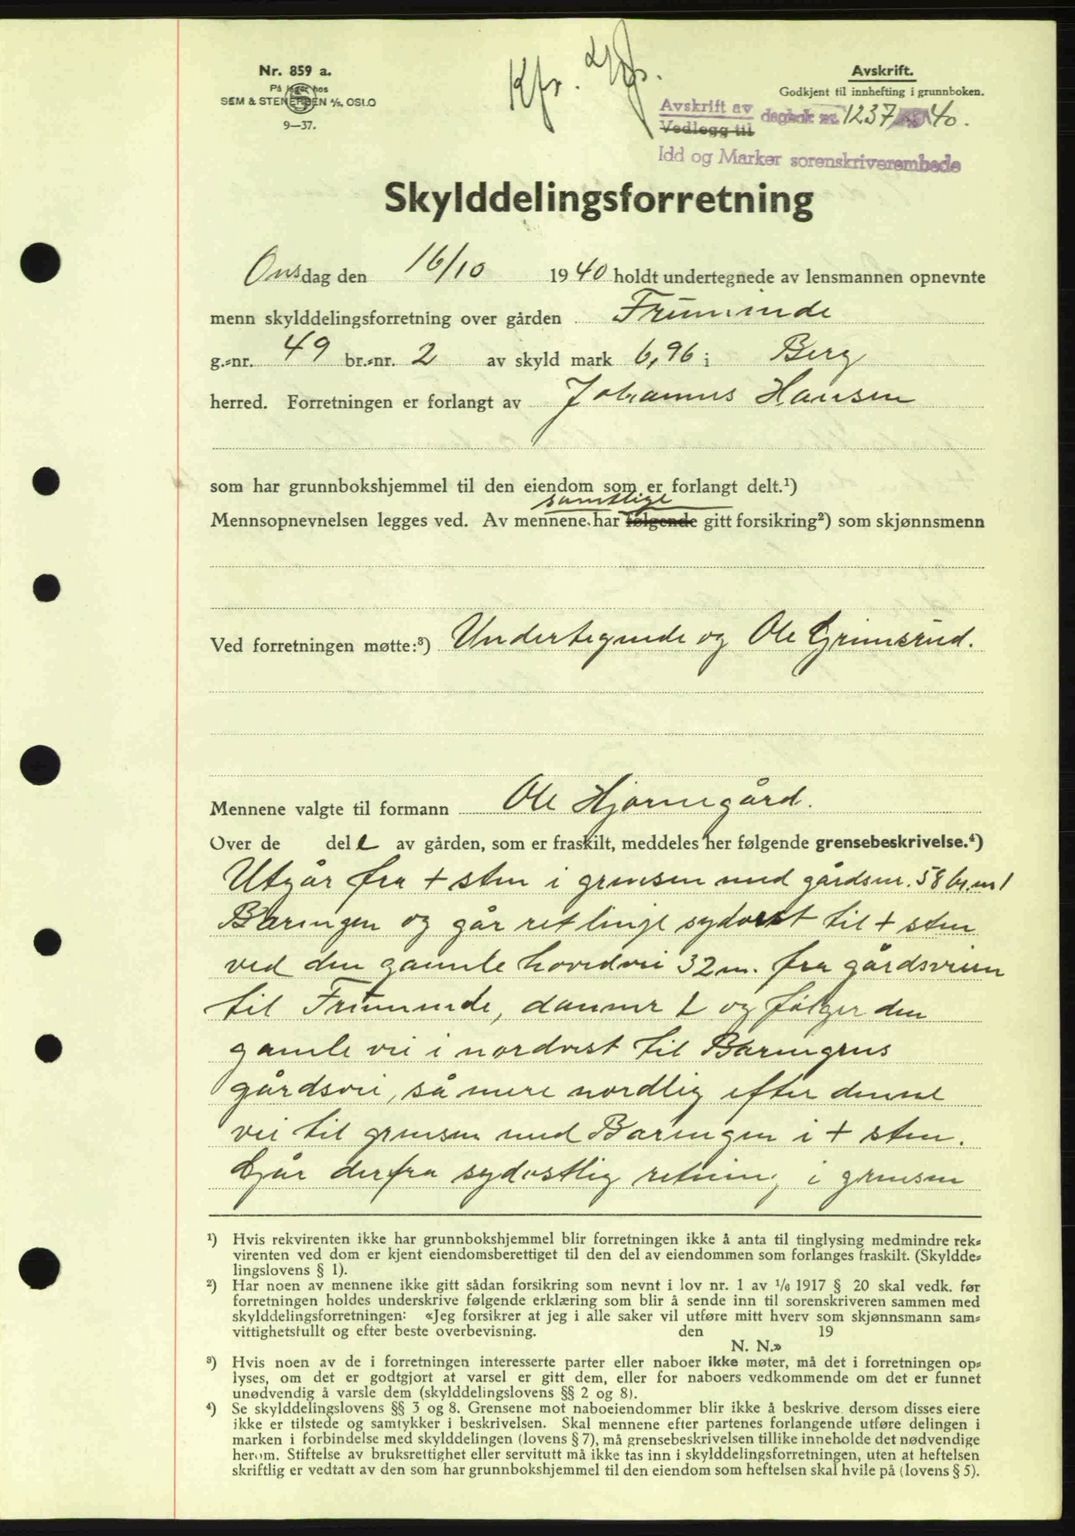 Nr. 859 a.
På lager hos
SEM & STENERSEN A/S, OSLO
9—37.
Kfr.
Avskrift.
Godkjent til innhefting i grunnboken.
Avskrift av dagbok nr. 1237 40.
Vedlegg til
Idd og Marker sorenskriverembede
Skylddelingsforretning
Onsdag den 16/10 1940 holdt undertegnede av lensmannen opnevnte
menn skylddelingsforretning over gården
g.-nr. 49 br.-nr. 2 av skyld mark 6,96 i Berg
herred. Forretningen er forlangt av Johannes Hansen
som har grunnbokshjemmel til den eiendom som er forlangt delt.¹)
samtlige
Mennsopnevnelsen legges ved. Av mennene har følgende gitt forsikring²) som skjønnsmenn
Ved forretningen møtte:³) Undertegnede og Ole Grimsrud.
Mennene valgte til formann Ole Hjørnegård.
Over de del e av gården, som er fraskilt, meddeles her følgende grensebeskrivelse.⁴)
Utgår fra + sten i grensen med gårdsnr. 58 br.nr 1
Båringen og går ret linje sydvest til + sten
ved den gamle hovedvei 32 m. fra gårdsveien
til danner L og følger den
gamle vei i nordvest til Båringens
gårdsvei, så mere nordlig efter denne
vei til grensen med Båringen i + sten.
Går derfra sydøstlig retning i grensen
¹) Hvis rekvirenten ikke har grunnbokshjemmel blir forretningen ikke å anta til tinglysing medmindre rek-
virenten ved dom er kjent eiendomsberettiget til den del av eiendommen som forlanges fraskilt. (Skyldde-
lingslovens § 1).
²) Har noen av mennene ikke gitt sådan forsikring som nevnt i lov nr. 1 av 1/6 1917 § 20 skal vedk. før
forretningen holdes underskrive følgende erklæring som blir å sende inn til sorenskriveren sammen med
skylddelingsforretningen: «Jeg forsikrer at jeg i alle saker vil utføre mitt hverv som skjønnsmann sam-
vittighetsfullt og efter beste overbevisning. den 19
N. N.»
³) Hvis noen av de i forretningen interesserte parter eller naboer ikke møter, må det i forretningen op-
lyses, om det er godtgjort at varsel er gitt dem, eller for naboers vedkommende om det er funnet
unødvendig å varsle dem (skylddelingslovens §§ 2 og 8).
⁴) Se skylddelingslovens §§ 3 og 8. Grensene mot naboeiendommer blir ikke å beskrive dersom disses eiere
ikke er tilstede og samtykker i beskrivelsen. Skal mennene efter partenes forlangende utføre delingen i
marken i forbindelse med skylddelingen (lovens § 7), må grensebeskrivelsen tillike inneholde det nødvendige
herom. Stiftelse av bruksrettighet eller servitutt må ikke tas inn i skylddelingsforretningen, uten at heftelsen
skriftlig er vedtatt av den som har grunnbokshjemmel til den eiendom som heftelsen skal hvile på (lovens § 5).